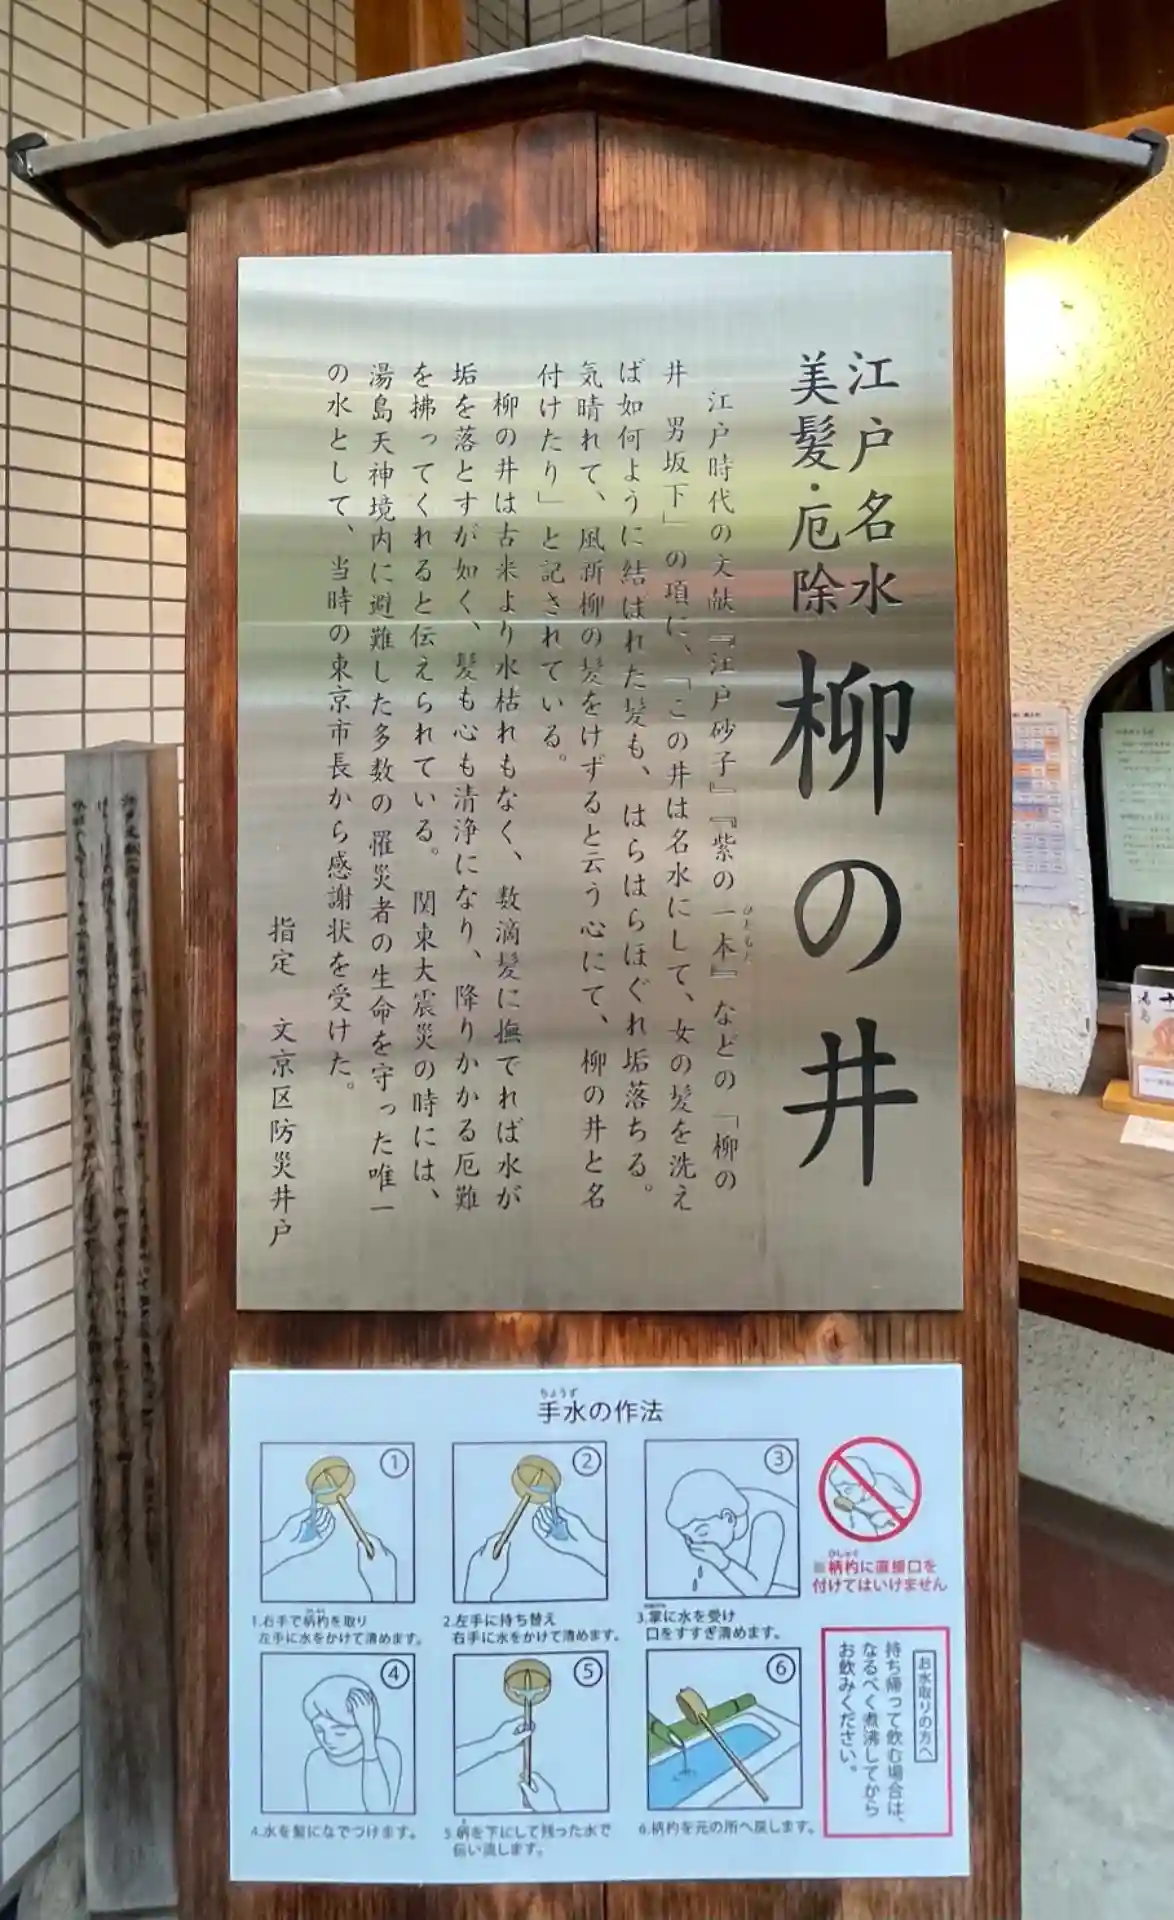 江戸名水
美髪・厄除
柳の井
江戸時代の文献『江戸砂子』『紫の一本』などの「柳の
ひともと
井　男坂下」の項に、「この井は名水にして、女の髪を洗え
ば如何ように結ばれた髪も、はらはらほぐれ垢落ちる。
気晴れて、風新柳の髪をけずると云う心にて、柳の井と名
付けたり」と記されている。
柳の井は古来より水枯れもなく、数滴髪に撫でれば水が
垢を落とすが如く、髪も心も清浄になり、降りかかる厄難
を拂ってくれると伝えられている。関東大震災の時には、
湯島天神境内に避難した多数の罹災者の生命を守った唯一
の水として、当時の東京市長から感謝状を受けた。
指定　文京区防災井戸
ちょうず
手水の作法
①
②
③
1.右手で柄杓を取り
左手に水をかけて清めます。
2.左手に持ち替え
右手に水をかけて清めます。
3.掌に水を受け
口をすすぎ清めます。
ひしゃく
※柄杓に直接口を
付けてはいけません
④
⑤
⑥
4.水を髪になでつけます。
5.柄を下にして残った水で
伝い流します。
6.柄杓を元の所へ戻します。
お水取りの方へ
持ち帰って飲む場合は、
なるべく煮沸してから
お飲みください。